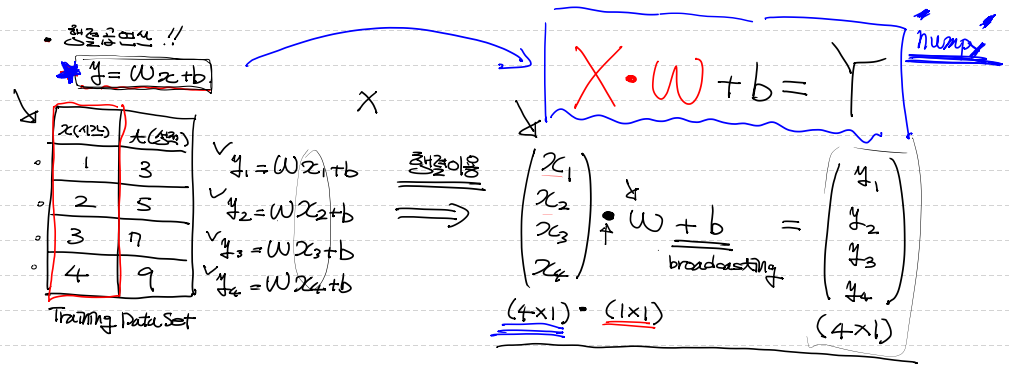 • 행렬곱연산 !!
y = Wx+b
x(시간) t(성적)
1 3
2 5
3 7
4 9
Training Data Set
y₁ = Wx₁+b
y₂ = Wx₂+b
y₃ = Wx₃+b
y₄ = Wx₄+b
X
행렬이용
⇒
numpy
X • W + b = Y
x₁
x₂
x₃
x₄
• W + b =
broadcasting
y₁
y₂
y₃
y₄
(4×1) • (1×1)
(4×1)